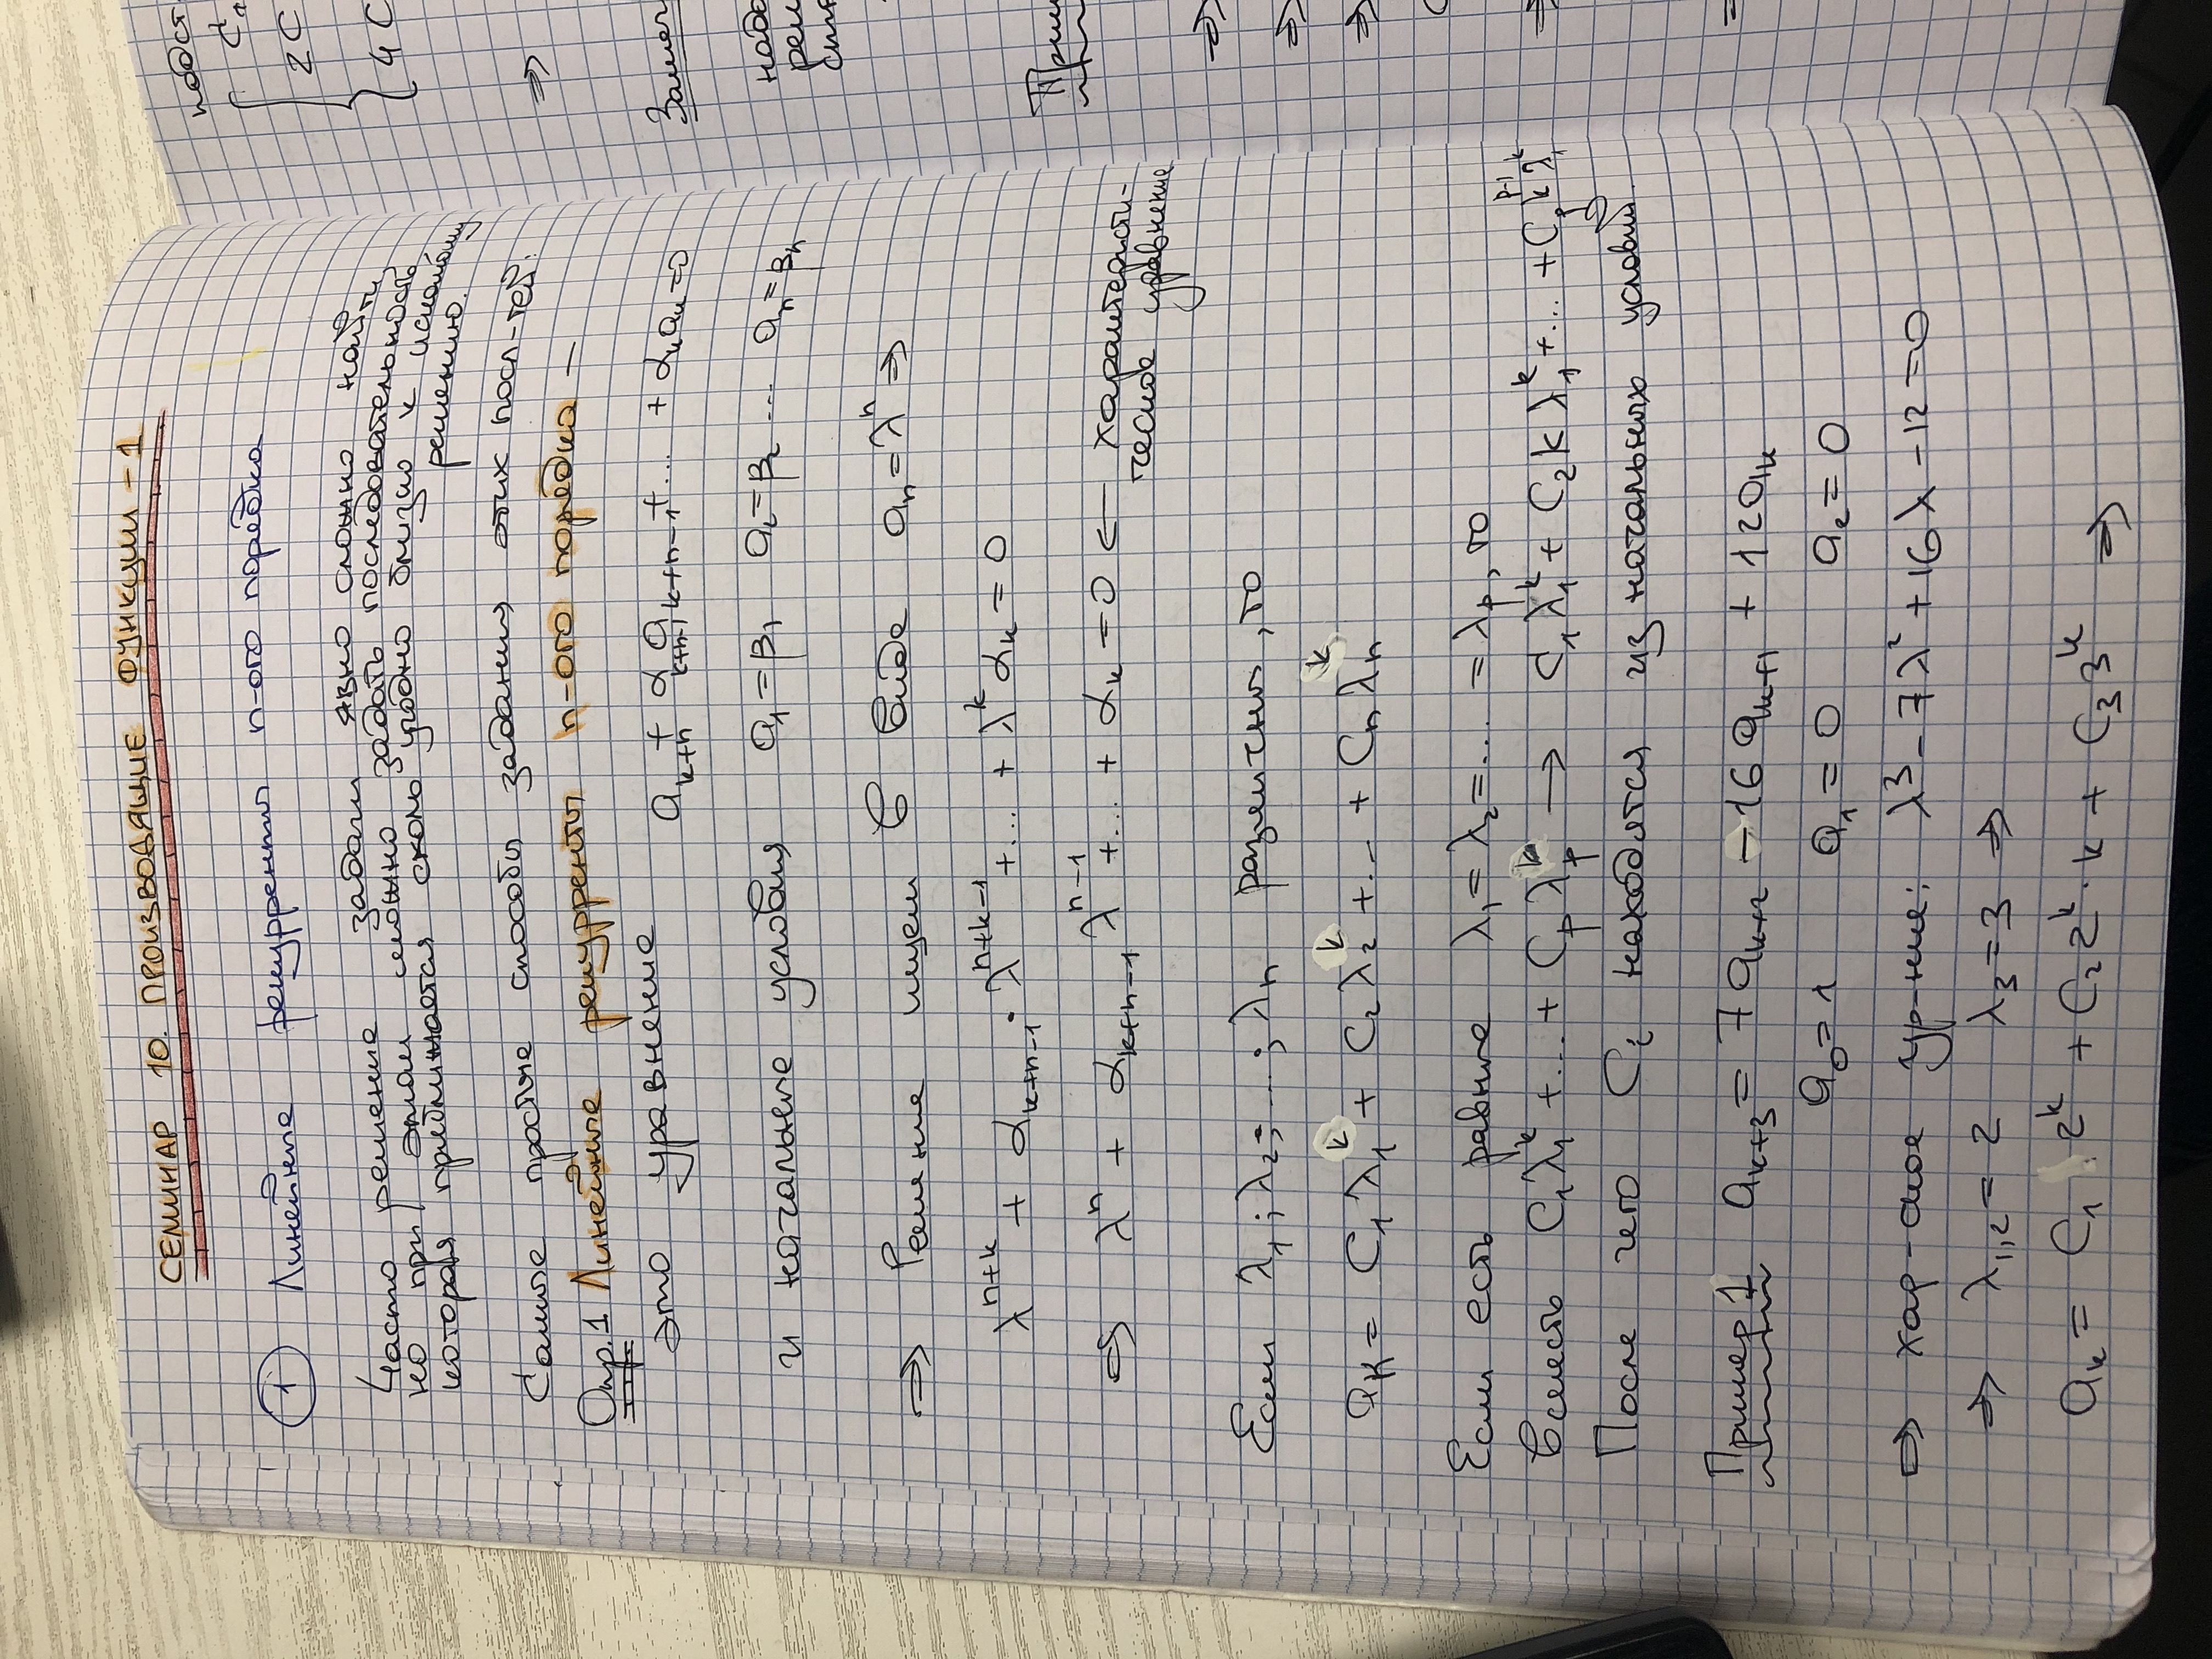 СЕМИНАР 10. ПРОИЗВОДЯЩИЕ ФУНКЦИИ - 1
1 Линейные рекурренты n-ого порядка
Часто решение задачи явно сложно найти,
но при этом можно задать последовательность,
которая приближается сколь угодно близко к искомому
решению.
Самые простые способы задания этих посл-тей:
Опр.1 Линейные рекурренты n-ого порядка —
это уравнение a_{k+n} + α_{k+n-1} a_{k+n-1} + ... + α_k a_k = 0
и начальные условия a₁ = β₁ a₂ = β₂ ... a_n = β_n
⇒ Решение ищем в виде a_n = λ^n ⇒
λ^{n+k} + α_{k+n-1} · λ^{n+k-1} + ... + λ^k α_k = 0
⇒ λ^n + α_{k+n-1} λ^{n-1} + ... + α_k = 0 ← характеристи-
ческое уравнение
Если λ₁; λ₂; ...; λ_n различны, то
a_k = C₁ λ₁^k + C₂ λ₂^k + ... + C_n λ_n^k
Если есть равные λ₁ = λ₂ = ... = λ_p, то
вместь C₁ λ₁^k + ... + C_p λ_p^k → C₁ λ₁^k + C₂ k λ₁^k + ... + C_p k^{p-1} λ₁^k
После чего C_i находятся из начальных условий.
Пример 1 a_{k+3} = 7 a_{k+2} - 16 a_{k+1} + 12 a_k
a₀ = 1 a₁ = 0 a₂ = 0
⇒ хар-ское ур-ние: λ³ - 7λ² + 16λ - 12 = 0
⇒ λ_{1,2} = 2 λ₃ = 3 ⇒
a_k = C₁ · 2^k + C₂ 2^k · k + C₃ 3^k ⇒
подст
C₁
2 C
4 C
⇒
Замеч
надо
реш
Прим
⇒
⇒
⇒